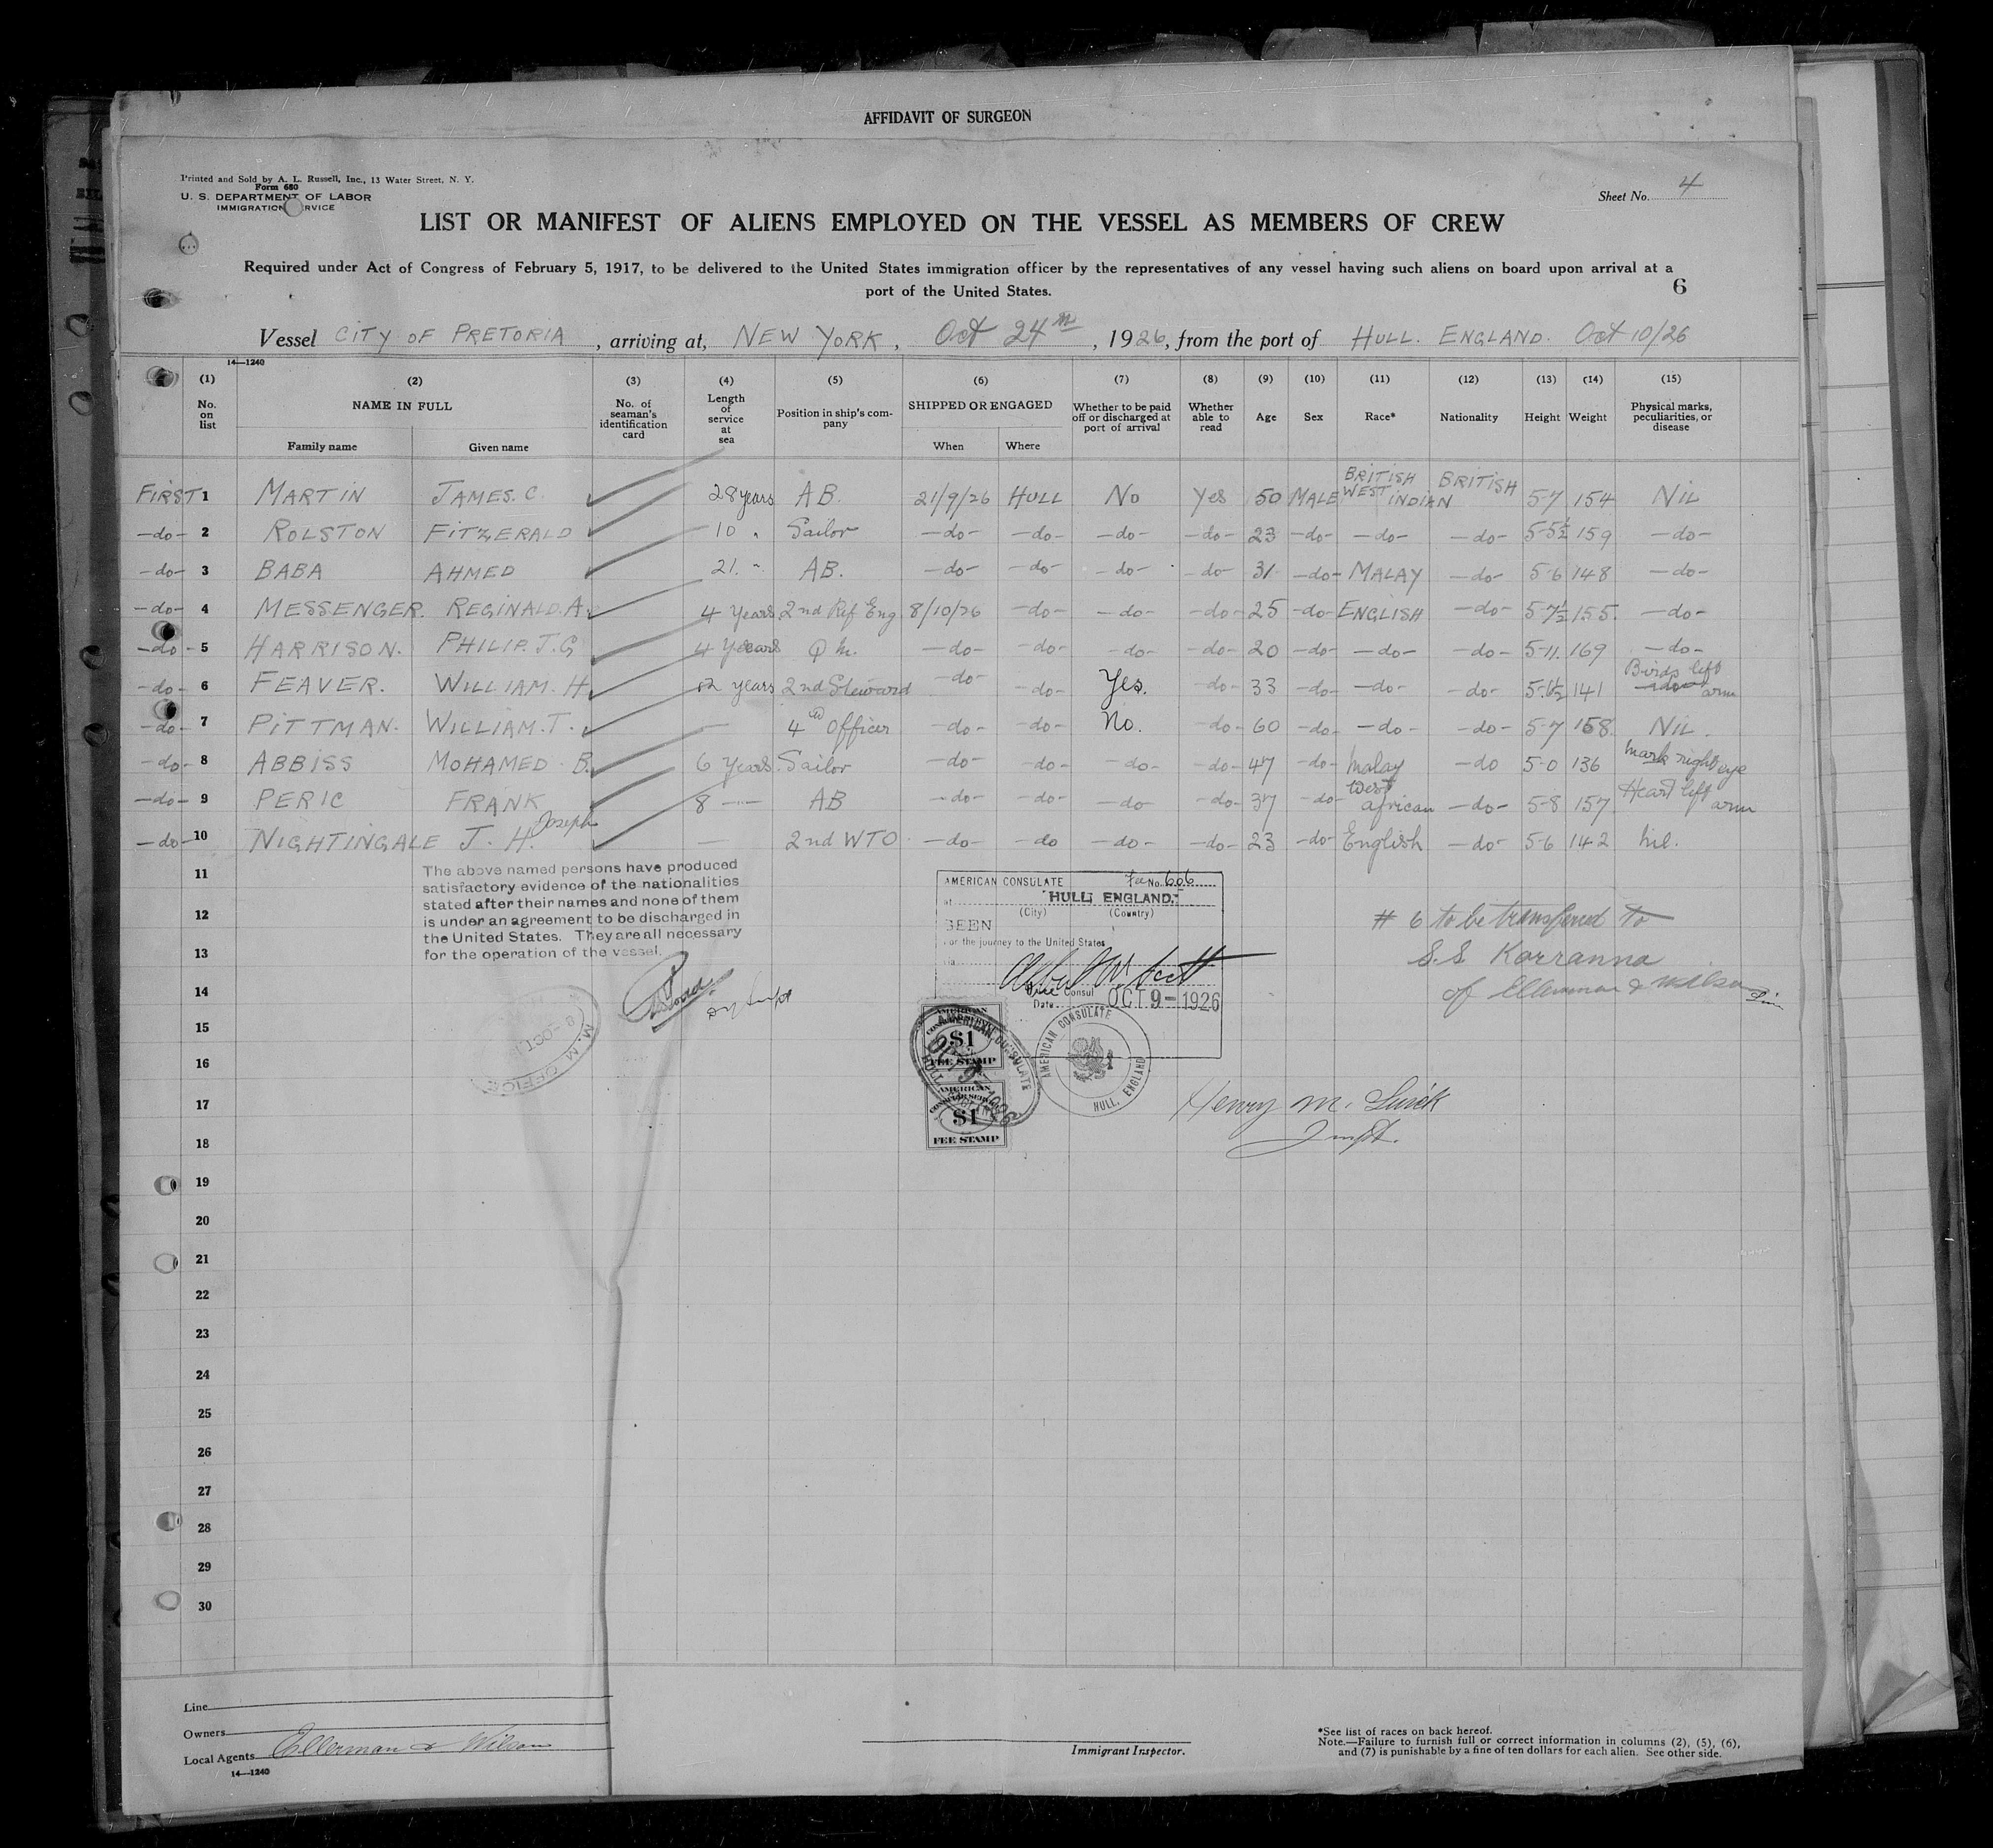 AFFIDAVIT OF SURGEON
Printed and Sold by A. L. Russell, Inc., 13 Water Street, N. Y.
Form 680
U. S. DEPARTMENT OF LABOR
IMMIGRATION SERVICE
Sheet No. 4
LIST OR MANIFEST OF ALIENS EMPLOYED ON THE VESSEL AS MEMBERS OF CREW
Required under Act of Congress of February 5, 1917, to be delivered to the United States immigration officer by the representatives of any vessel having such aliens on board upon arrival at a
port of the United States.
6
Vessel CITY OF PRETORIA, arriving at, NEW YORK, Oct 24th, 1926, from the port of HULL. ENGLAND. Oct 10/26
14—1240
(1) (2) (3) (4) (5) (6) (7) (8) (9) (10) (11) (12) (13) (14) (15)
No. on list
NAME IN FULL
Family name Given name
No. of seaman's identification card
Length of service at sea
Position in ship's company
SHIPPED OR ENGAGED
When Where
Whether to be paid off or discharged at port of arrival
Whether able to read
Age
Sex
Race*
Nationality
Height
Weight
Physical marks, peculiarities, or disease
FIRST 1 MARTIN JAMES. C. 28 years AB. 21/9/26 HULL No Yes 50 MALE BRITISH WEST INDIAN BRITISH 5-7 154 NIL
-do- 2 ROLSTON FITZERALD 10 " Sailor -do- -do- -do- -do- 23 -do- -do- -do- 5-5½ 159 -do-
-do- 3 BABA AHMED 21. " AB. -do- -do- -do- -do 31 -do- MALAY -do- 5-6 148 -do-
-do- 4 MESSENGER. REGINALD. A. 4 Years 2nd Ref Eng 8/10/26 -do- -do- -do- 25 -do- ENGLISH -do- 5-7½ 155. -do-
-do- 5 HARRISON. PHILIP. J. G 4 Years Q M. -do- -do- -do- -do- 20 -do- -do- -do- 5-11. 169 -do-
-do- 6 FEAVER. WILLIAM. H. 12 years 2nd Steward -do- -do- Yes. -do- 33 -do- -do- -do- 5-6½ 141 Birds left arm
-do- 7 PITTMAN. WILLIAM. T. — 4th Officer -do- -do- No. -do- 60 -do- -do- -do- 5-7 158. NIL.
-do- 8 ABBISS MOHAMED. B. 6 Years. Sailor -do- -do- -do- -do- 47 -do- Malay -do 5-0 136 mark right eye
-do- 9 PERIC FRANK 8 — AB -do- -do- -do -do- 37 -do- West African -do- 5-8 157 Heart left arm
-do- 10 NIGHTINGALE J. H. Joseph — 2nd WTO. -do- -do -do- -do- 23 -do- English -do- 5-6 142 nil.
11
The above named persons have produced
satisfactory evidence of the nationalities
stated after their names and none of them
is under an agreement to be discharged in
the United States. They are all necessary
for the operation of the vessel.
AMERICAN CONSULATE Fee No. 606
at HULL, ENGLAND.
(City) (Country)
SEEN
For the journey to the United States
Consul
Date OCT 9-1926
# 6 to be transferred to
S.S. Korranna
of Ellerman & Wilson
12
13
14
M. M. OFFICE
AMERICAN
$1
FEE STAMP
AMERICAN
$1
FEE STAMP
AMERICAN CONSULATE
HULL, ENGLAND
15
16
17
Henry M.
18
19
20
21
22
23
24
25
26
27
28
29
30
Line
Owners
Local Agents Ellerman & Wilson
14—1240
Immigrant Inspector.
*See list of races on back hereof.
Note.—Failure to furnish full or correct information in columns (2), (5), (6),
and (7) is punishable by a fine of ten dollars for each alien. See other side.